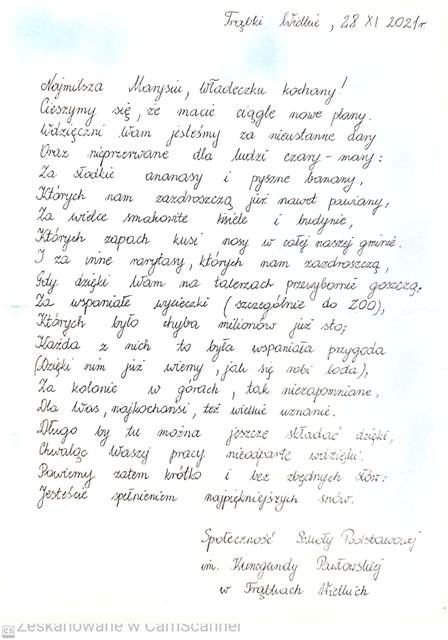 Trąbki Wielkie, 28 XI 2021r.
Najmilsza Marysiu, Władeczku kochany!
Cieszymy się, że macie ciągle nowe plany.
Wdzięczni Wam jesteśmy za nieustanne dary
Oraz nieprzerwane dla ludzi czary-mary:
Za słodkie ananasy i pyszne banany,
Których nam zazdroszczą już nawet pawiany,
Za wielce smakowite kisiele i budynie,
Których zapach kusi nosy w całej naszej gminie.
I za inne rarytasy, których nam zazdroszczą,
Gdy dzięki Wam na talerzach przewybornie goszczą;
Za wspaniałe wycieczki (szczególnie do ZOO),
Których było chyba milionów już sto;
Każda z nich to była wspaniała przygoda
(Dzięki nim już wiemy, jak się robi loda),
Za kolonie w górach, tak niezapomniane,
Dla Was, najkochańsi, też wielkie uznanie.
Długo by tu można jeszcze składać dzięki,
Chwaląc Waszej pracy nieodparte wdzięki.
Powiemy zatem krótko i bez zbędnych słów:
Jesteście spełnieniem najpiękniejszych snów.
Społeczność Szkoły Podstawowej
im. Kunegundy Pawłowskiej
w Trąbkach Wielkich
CS Zeskanowane w CamScanner